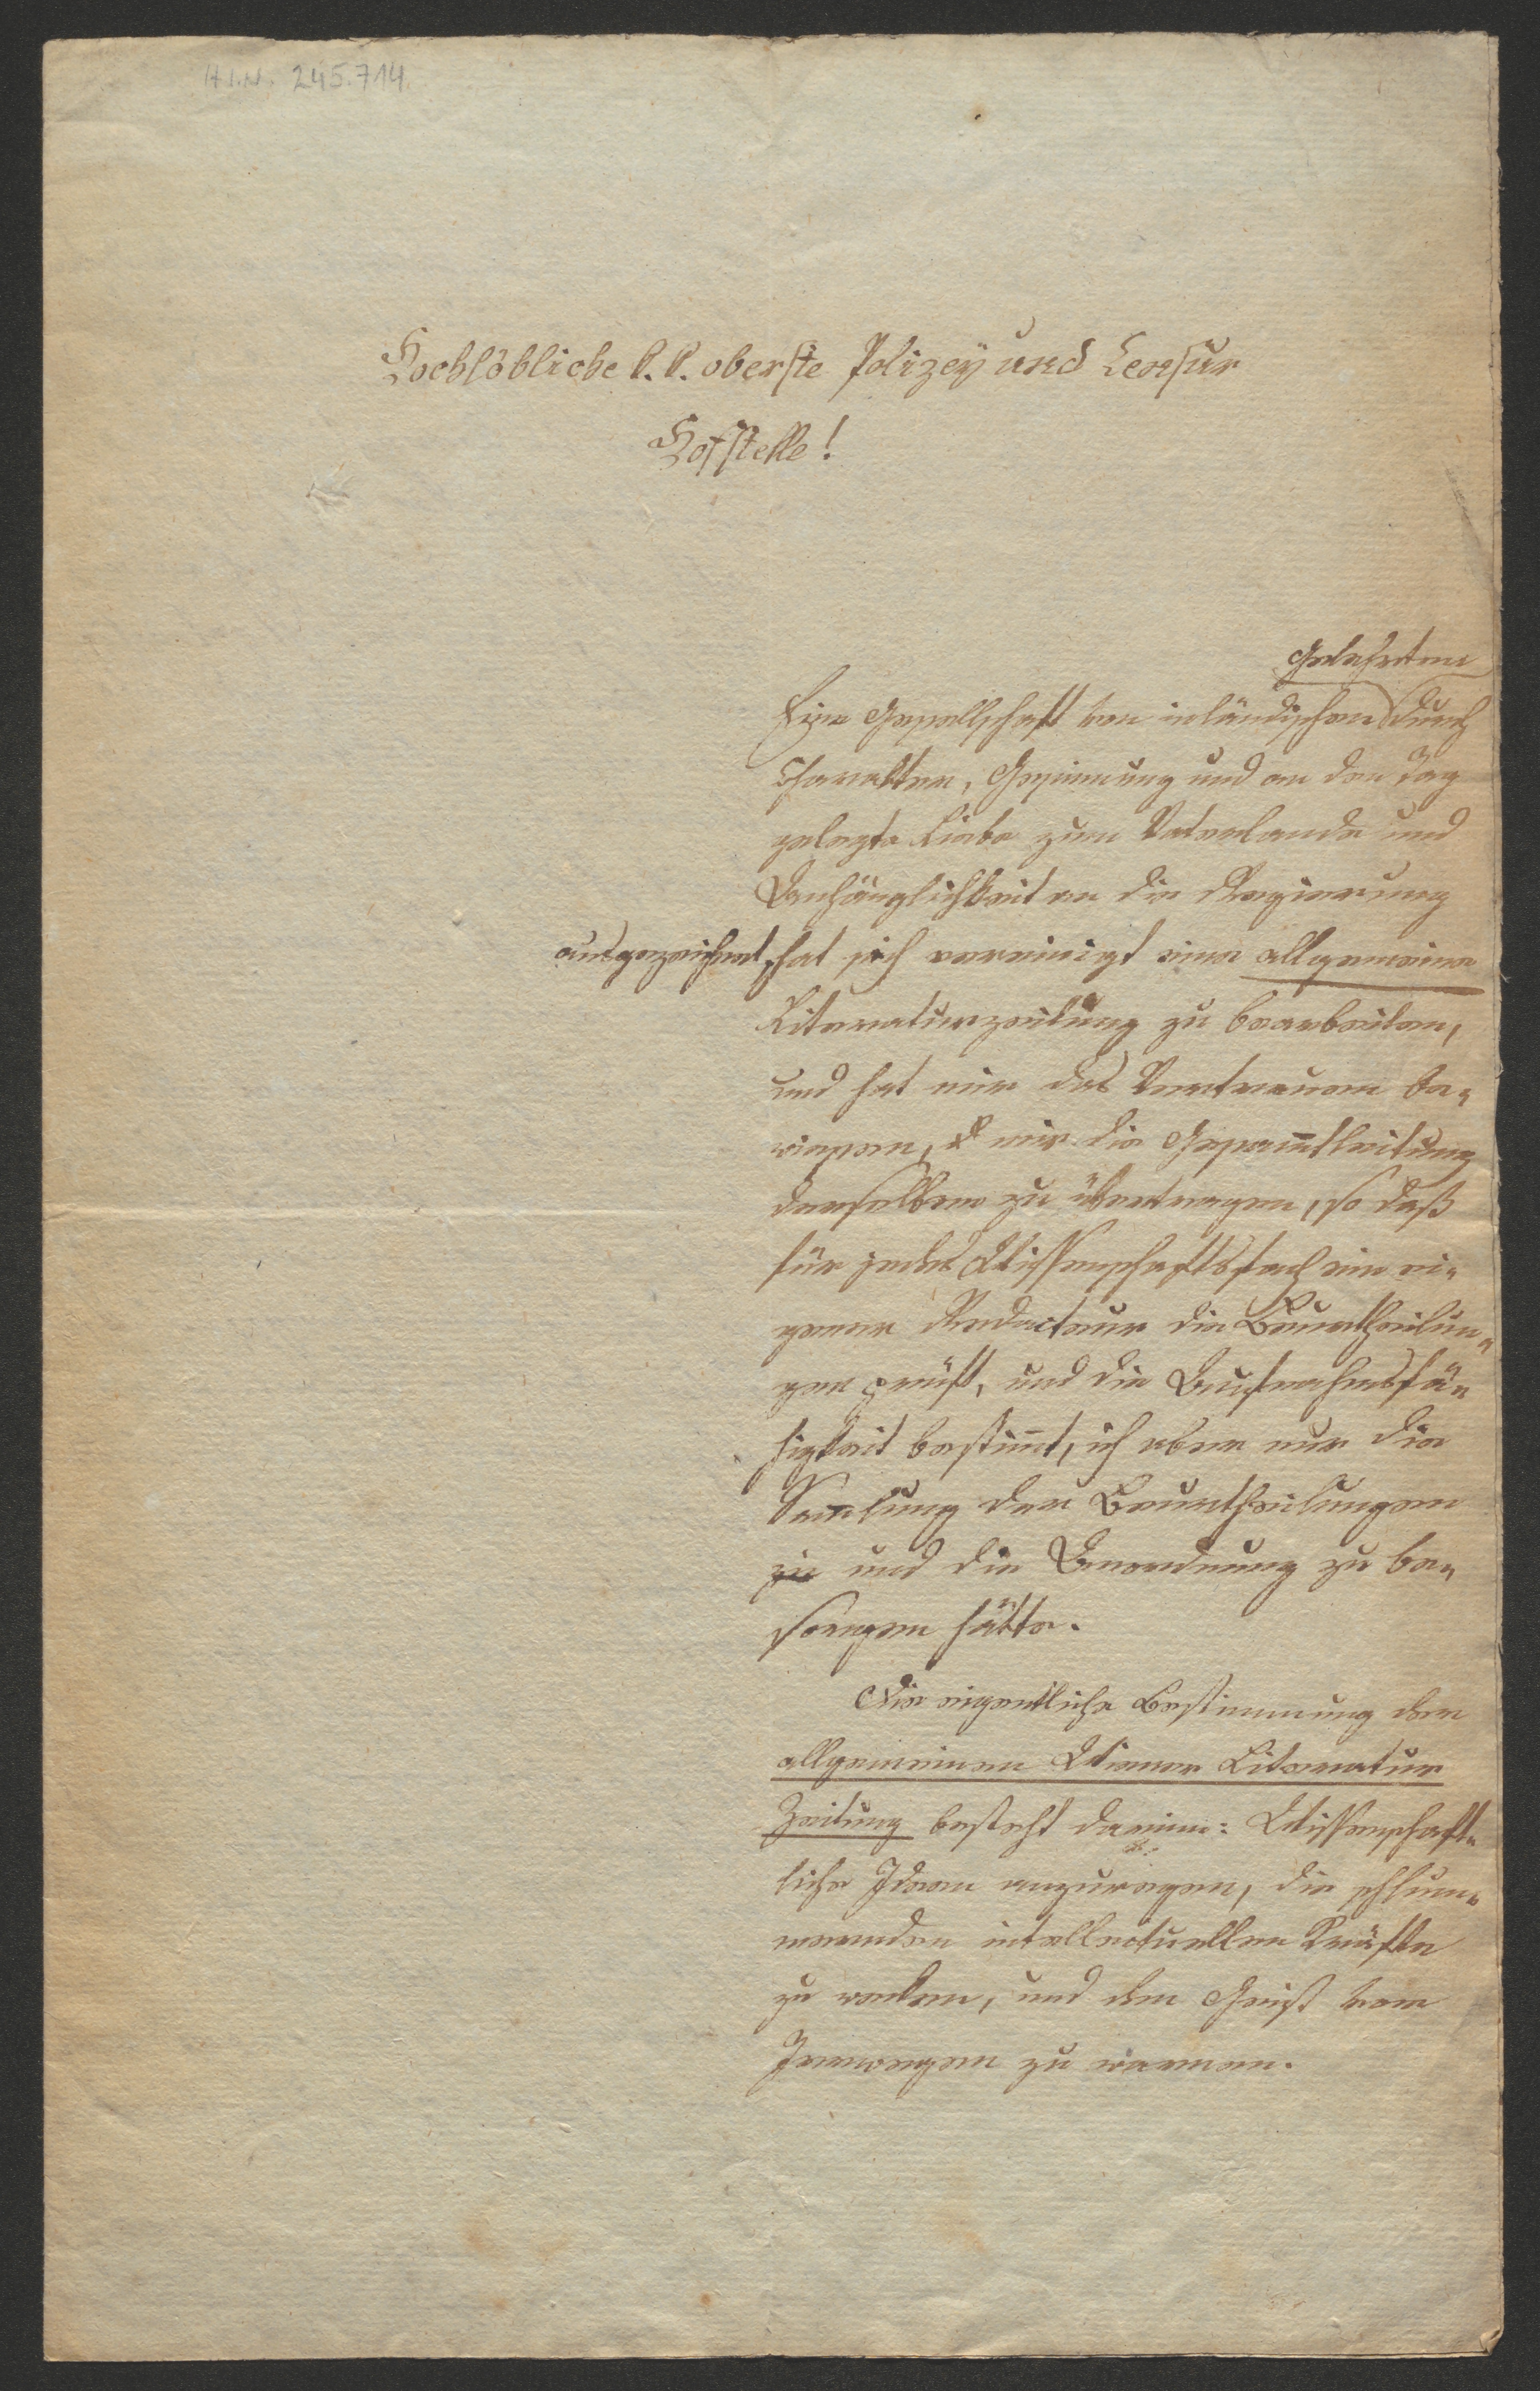 H.I.N. 245.714.
Hochlöbliche k. k. oberste Polizey und Censur
Hofstelle!
Gelehrten
Eine Gesellschaft von inländischen durch
Charakter, Gesinnung und an den Tag
gelegte Liebe zum Vaterlande und
Anhänglichkeit an die Regierung
ausgezeichnet, hat sich vereinigt eine allgemeine
Literaturzeitung zu bearbeiten,
und hat mir das Vertrauen be-
wiesen, mir die Gesam̅tleitung
derselben zu übertragen, so daß
für jedes Wissenschaftsfach ein ei-
gener Redacteur die Beurtheilun-
gen prüft, und die Aufnahmsfä-
higkeit bestim̅t, ich aber nur die
Sam̅lung der Beurtheilungen
zu und die Anordnung zu be-
sorgen hätte.
Die eigentliche Bestimmung der
allgemeinen Wiener Literatur
Zeitung besteht darinn: Wissenschaft-
liche Ideen anzuregen, die schlum-
mernden intellectuellen Kräfte
zu wecken, und den Geist vor
Irrwegen zu warnen.